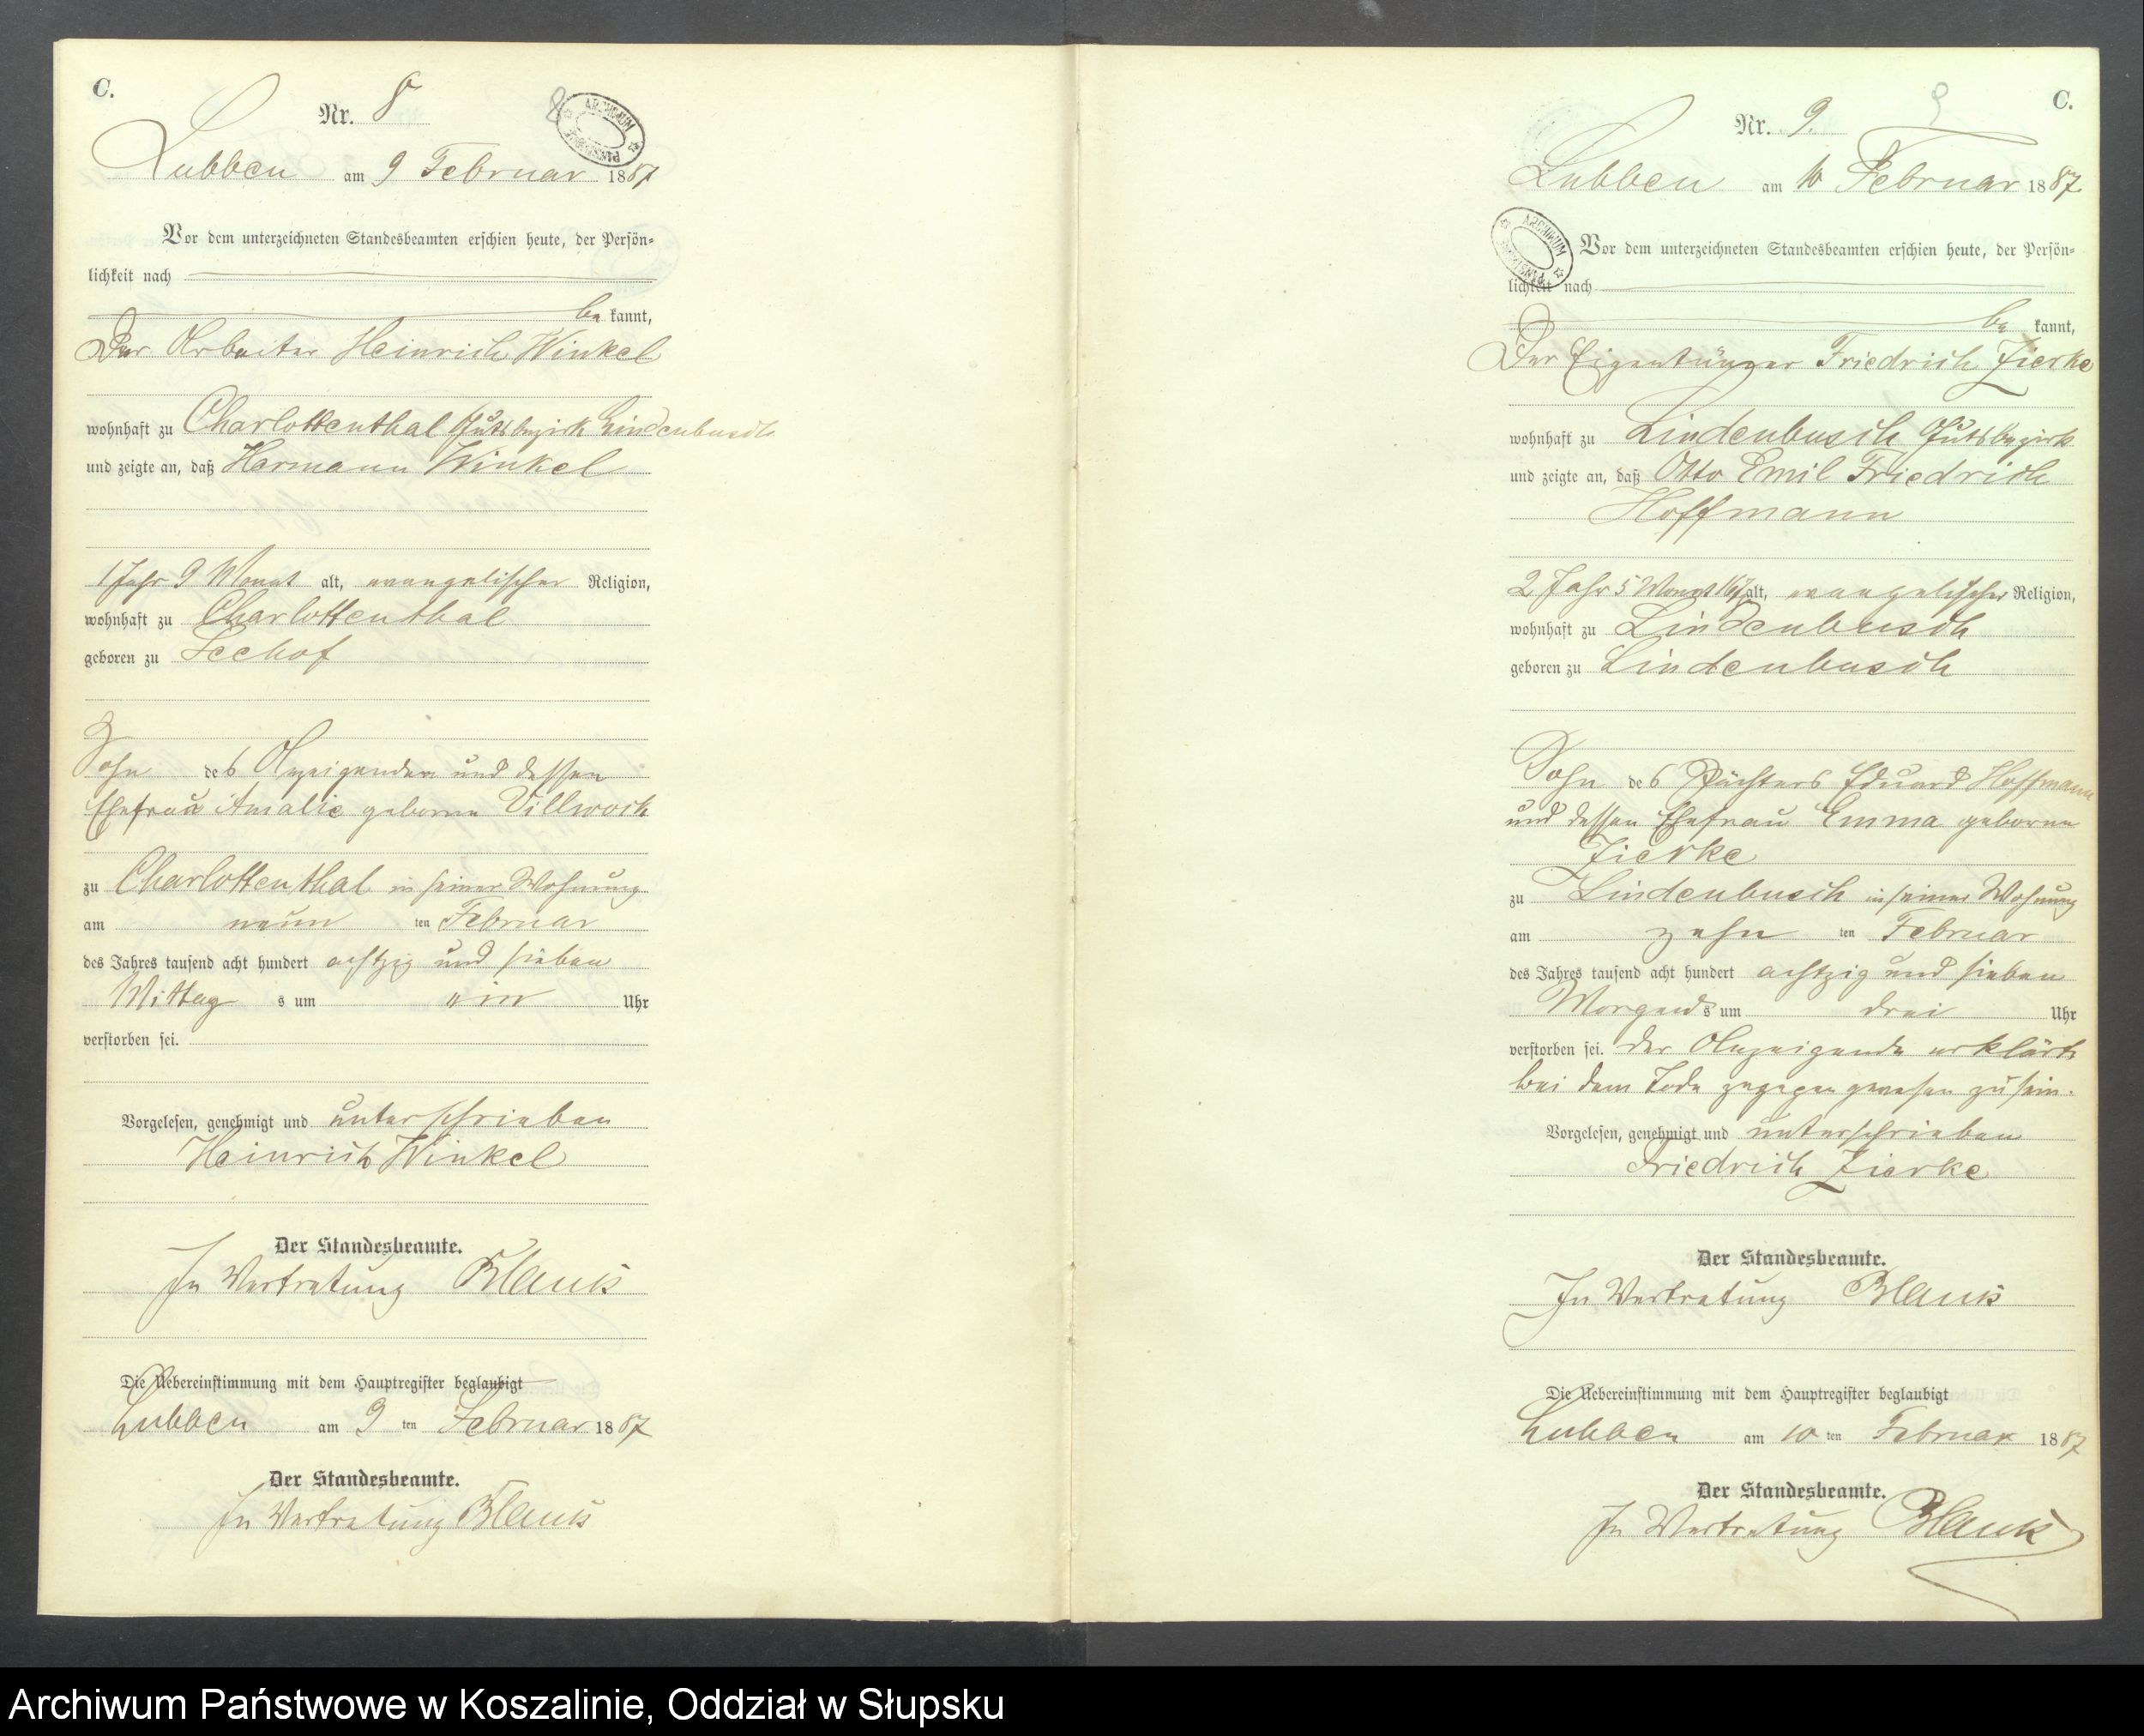 C.
Nr. 8
8
ARCHIWUM PAŃSTWOWE
Lubben am 9 Februar 1887
Vor dem unterzeichneten Standesbeamten erschien heute, der Persön=
lichkeit nach
be kannt,
Der Arbeiter Heinrich Winkel
wohnhaft zu Charlottenthal Gutsbezirk Lindenbusch
und zeigte an, daß Hermann Winkel
1 Jahr 9 Monat alt, evangelischer Religion,
wohnhaft zu Charlottenthal
geboren zu Seehof
Sohn des Anzeigenden und dessen
Ehefrau Amalie geborne Villwock
zu Charlottenthal in seiner Wohnung
am neun ten Februar
des Jahres tausend acht hundert achtzig und sieben
Mittag s um ein Uhr
verstorben sei.
Vorgelesen, genehmigt und unterschrieben
Heinrich Winkel
Der Standesbeamte.
In Vertretung Blank
Die Uebereinstimmung mit dem Hauptregister beglaubigt
Lubben am 9 ten Februar 1887
Der Standesbeamte.
In Vertretung Blank
C.
9
Nr. 9.
Lubben am 10 Februar 1887
ARCHIWUM PAŃSTWOWE
Vor dem unterzeichneten Standesbeamten erschien heute, der Persön=
lichkeit nach
be kannt,
Der Eigentümer Friedrich Zierke
wohnhaft zu Lindenbusch Gutsbezirk
und zeigte an, daß Otto Emil Friedrich
Hoffmann
2 Jahr 5 Monat 16 T alt, evangelischer Religion,
wohnhaft zu Lindenbusch
geboren zu Lindenbusch
Sohn des Pächters Eduard Hoffmann
und dessen Ehefrau Emma geborne
Zierke
zu Lindenbusch in seiner Wohnung
am zehn ten Februar
des Jahres tausend acht hundert achtzig und sieben
Morgends um drei Uhr
verstorben sei. Der Anzeigende erklärte
bei dem Tode zugegen gewesen zu sein.
Vorgelesen, genehmigt und unterschrieben
Friedrich Zierke
Der Standesbeamte.
In Vertretung Blank
Die Uebereinstimmung mit dem Hauptregister beglaubigt
Lubben am 10 ten Februar 1887
Der Standesbeamte.
In Vertretung Blank
Archiwum Państwowe w Koszalinie, Oddział w Słupsku